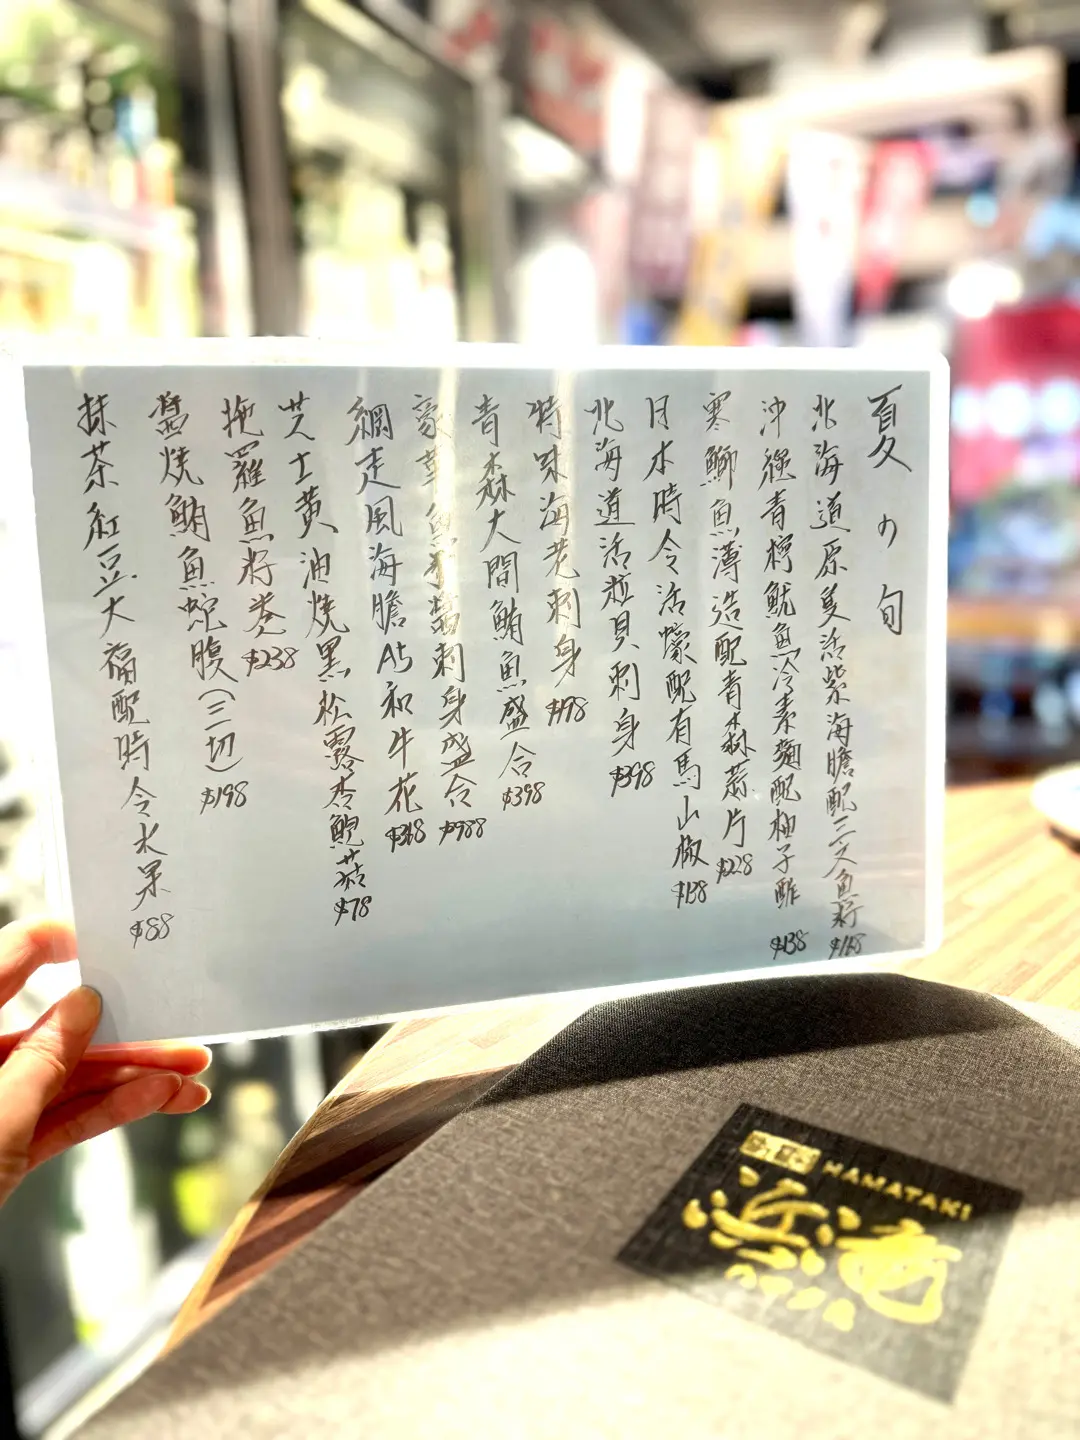 夏の旬
北海道原隻活紫海膽配三文魚籽 $168
沖繩青檸魷魚冷素麵配柚子酢 $138
寒鰤魚薄造配青森蒜片 $228
日本時令活蠔配有馬山椒 $138
北海道活粒貝刺身 $398
特味海老刺身 $198
青森大間鮪魚盛合 $398
豪華魚 刺身盛合 $988
網走風海膽A5和牛花 $318
芝士黃油燒黑松露杏鮑菇 $78
拖羅魚籽卷 $238
醬燒鮪魚蛇腹(三切) $198
抹茶紅豆大福配時令水果 $88
HAMATAKI
浜滝